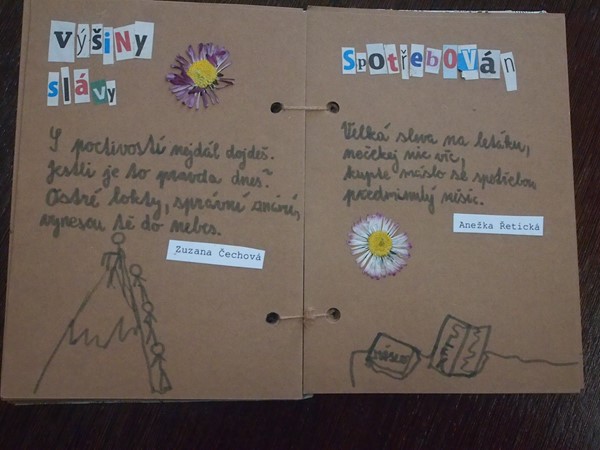 VýšiNy
slávy
S poctivostí nejdál dojdeš.
Jestli je to pravda dnes?
Ostré lokty, správné známé,
vynesou tě do nebes.
Zuzana Čechová
SpotřebOVán
Velká sleva na letáku,
nečekej nic víc,
kupte máslo se spotřebou
předminulý měsíc.
Anežka Řetická
MÁSLO